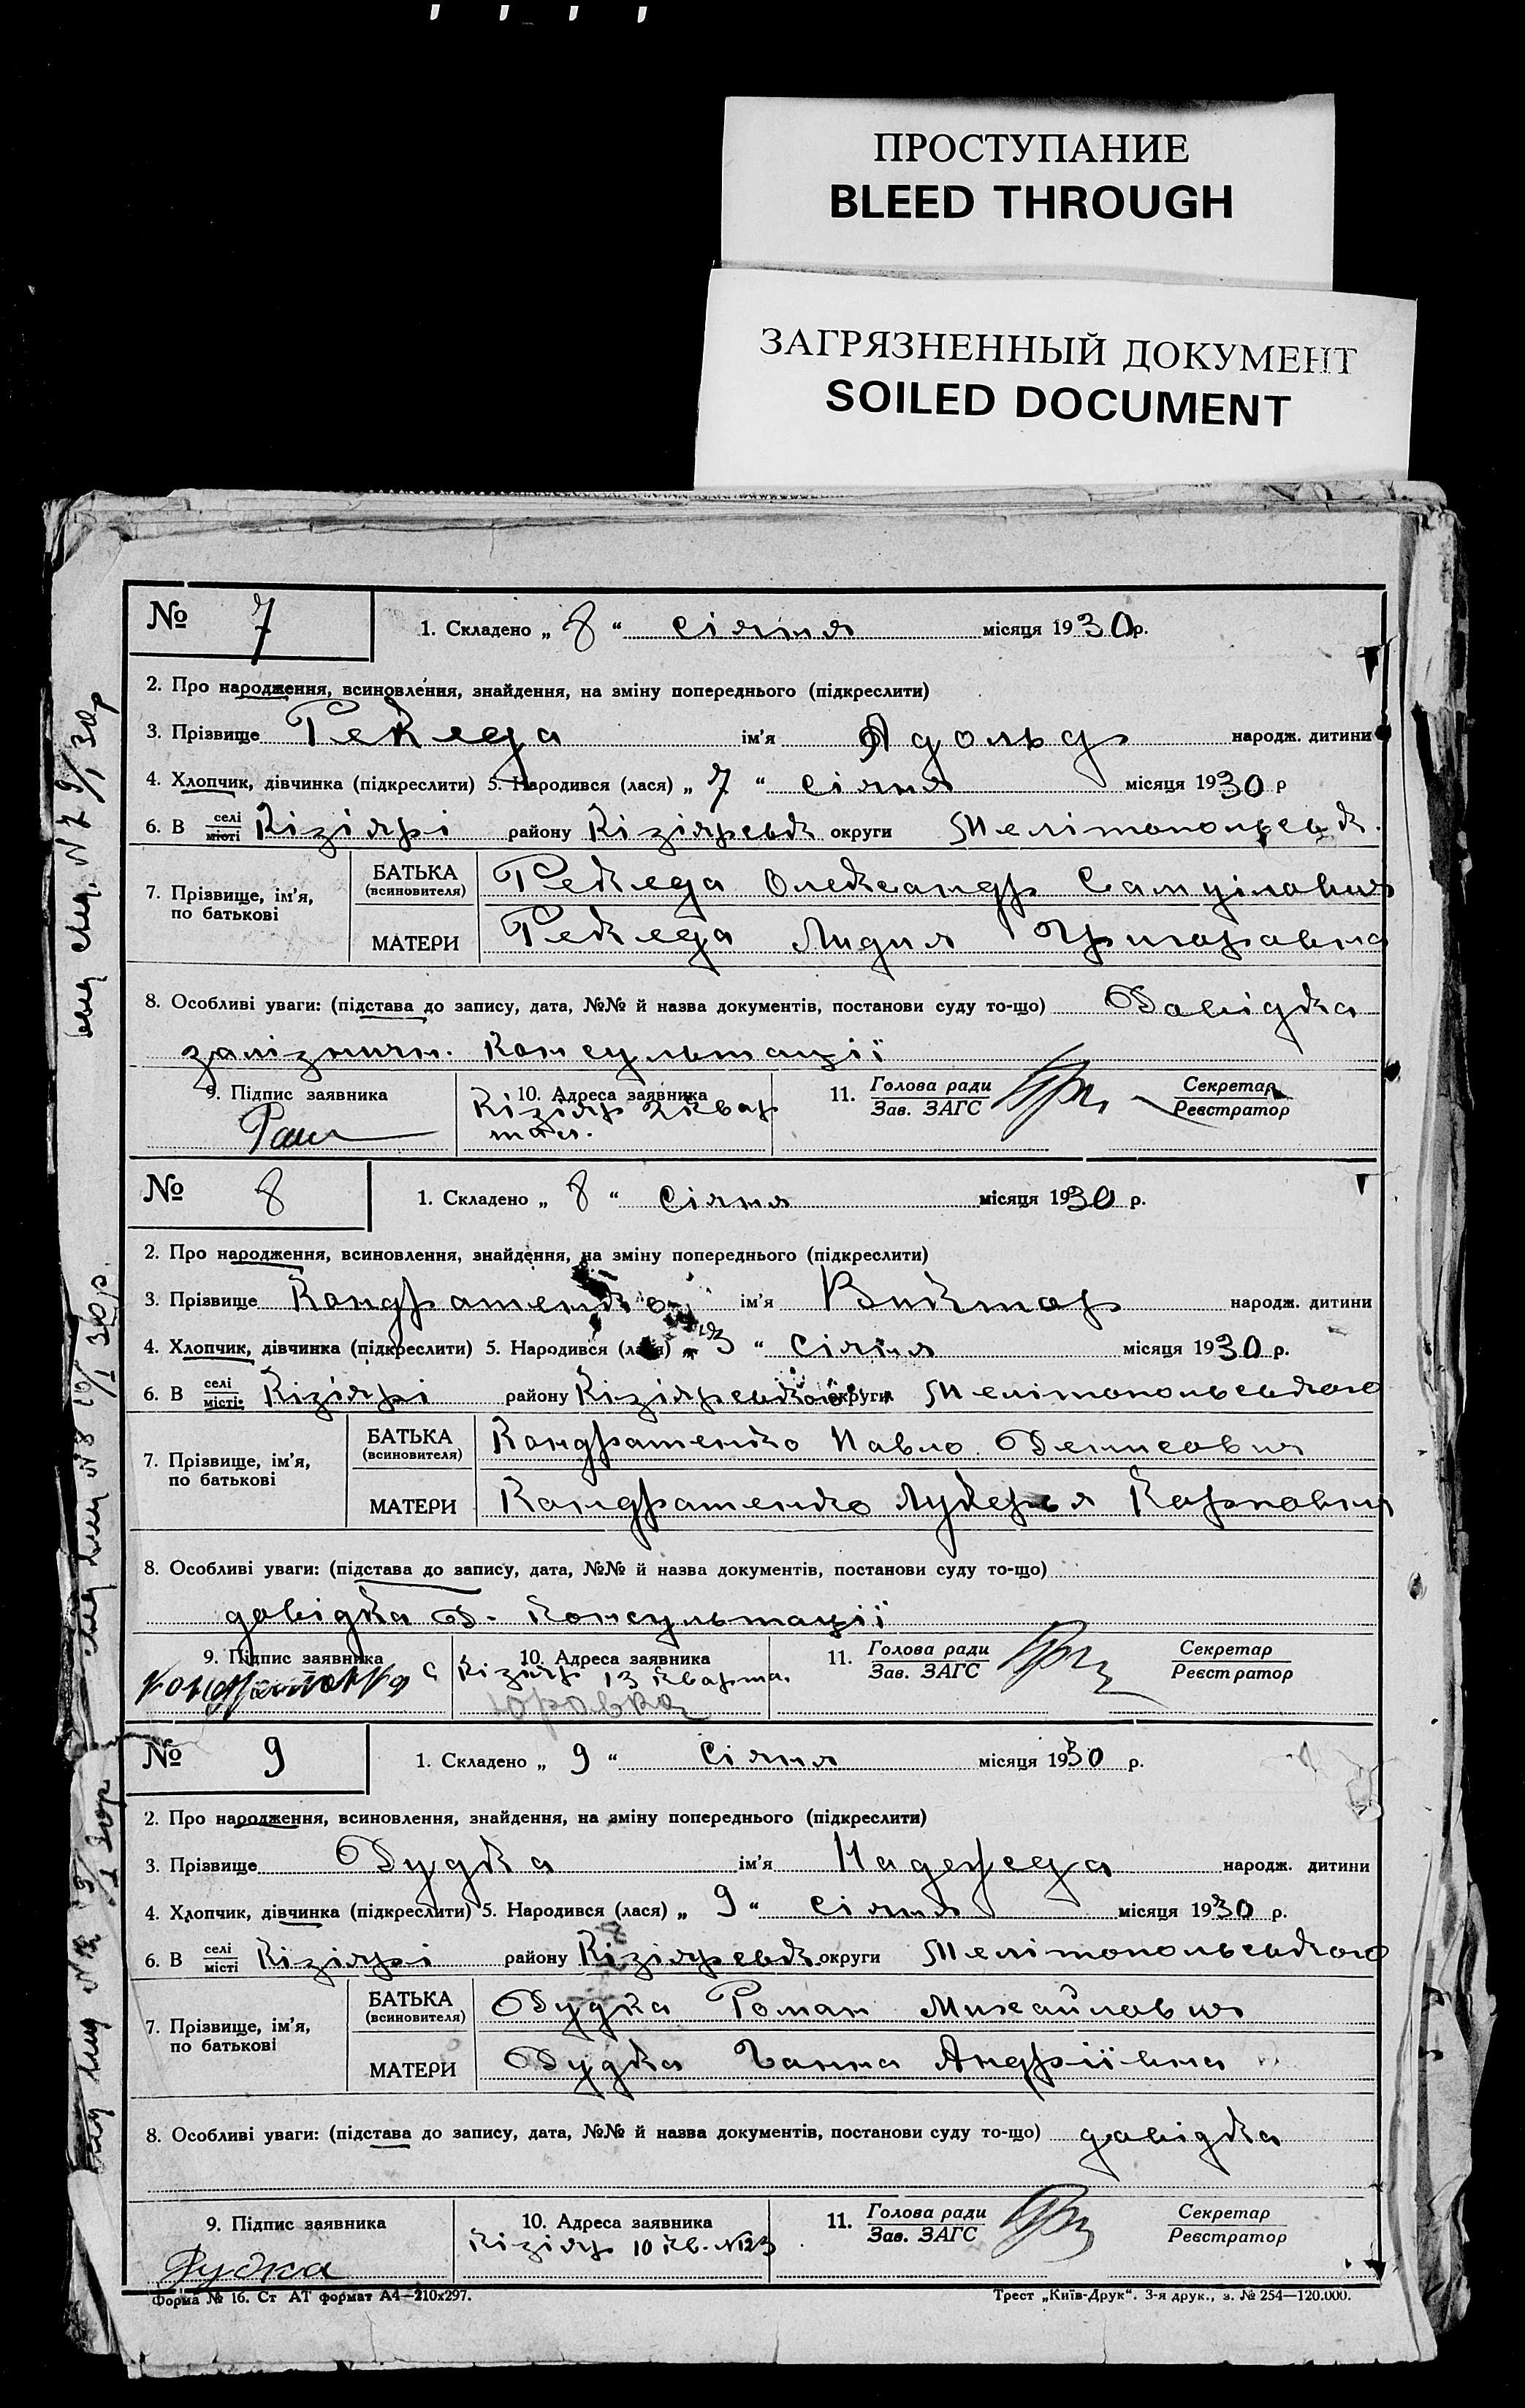 ПРОСТУПАНИЕ
BLEED THROUGH
ЗАГРЯЗНЕННЫЙ ДОКУМЕНТ
SOILED DOCUMENT
№ 7 1. Складено „ 8 “ січня місяця 1930 р.
2. Про народження, всиновлення, знайдення, на зміну попереднього (підкреслити)
3. Прізвище ім'я Адольф народж. дитини
4. Хлопчик, дівчинка (підкреслити) 5. Народився (лася) „ 7 “ січня місяця 1930 р
6. В селі місті Кізіярі району Кізіярськ округи Мелітопольськ.
7. Прізвище, ім'я, по батькові
БАТЬКА (всиновителя) Олександр Самуілович
МАТЕРИ Лидия Григоровна
8. Особливі уваги: (підстава до запису, дата, №№ й назва документів, постанови суду то-що) Довідка
залізничн. консультації
9. Підпис заявника 10. Адреса заявника 11. Голова ради Зав. ЗАГС Секретар Реєстратор
Кізіяр 2 квар
тал.
№ 8 1. Складено „ 8 “ січня місяця 1930 р.
2. Про народження, всиновлення, знайдення, на зміну попереднього (підкреслити)
3. Прізвище Кондратенко ім'я Виктор народж. дитини
4. Хлопчик, дівчинка (підкреслити) 5. Народився (лася) „ 3 “ січня місяця 1930 р.
6. В селі місті Кізіярі району Кізіярського округи Мелітопольського
7. Прізвище, ім'я, по батькові
БАТЬКА (всиновителя) Кондратенко Павло Денисович
МАТЕРИ Кондратенко Лукерья Карповна
8. Особливі уваги: (підстава до запису, дата, №№ й назва документів, постанови суду то-що)
довідка Д. консультації
9. Підпис заявника 10. Адреса заявника 11. Голова ради Зав. ЗАГС Секретар Реєстратор
Кізіяр 13 кварта.
Юровка
№ 9 1. Складено „ 9 “ січня місяця 1930 р.
2. Про народження, всиновлення, знайдення, на зміну попереднього (підкреслити)
3. Прізвище Дудка ім'я Надежда народж. дитини
4. Хлопчик, дівчинка (підкреслити) 5. Народився (лася) „ 9 “ січня місяця 1930 р.
6. В селі місті Кізіярі району Кізіярськ округи Мелітопольського
7. Прізвище, ім'я, по батькові
БАТЬКА (всиновителя) Дудка Роман Михайлович
МАТЕРИ Дудка Ганна Андріївна
8. Особливі уваги: (підстава до запису, дата, №№ й назва документів, постанови суду то-що) довідка
9. Підпис заявника 10. Адреса заявника 11. Голова ради Зав. ЗАГС Секретар Реєстратор
Дудка Кізіяр 10 кв. №123
Форма № 16. Ст АТ формат А4—210х297. Трест „Київ-Друк“. 3-я друк., з. № 254—120.000.